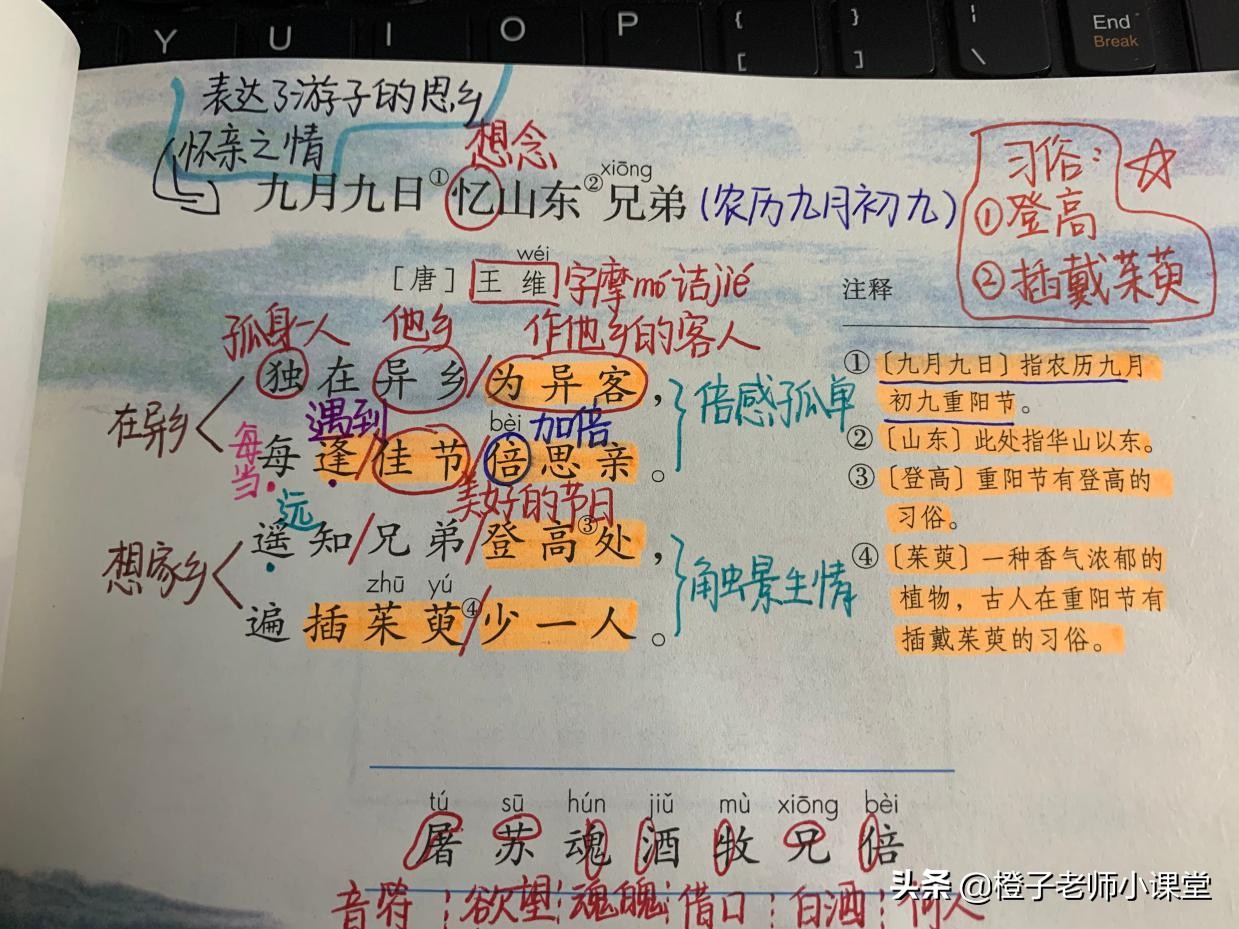 Y U I O P { [ } ] ¦ \ End Break
表达了游子的思乡
怀亲之情
想念
xiōng
九月九日①忆山东②兄弟(农历九月初九)
习俗:☆
①登高
②插戴茱萸
wéi
[唐] 王维 字摩mó诘jié
孤身一人 他乡 作他乡的客人
独在异乡/为异客,
在异乡
倍感孤单
遇到 bèi 加倍
每当
每逢/佳节/倍思亲。
远 美好的节日
遥知/兄弟/登高③处,
想家乡
触景生情
zhū yú
遍插茱萸④/少一人。
注释
①〔九月九日〕指农历九月
初九重阳节。
②〔山东〕此处指华山以东。
③〔登高〕重阳节有登高的
习俗。
④〔茱萸〕一种香气浓郁的
植物,古人在重阳节有
插戴茱萸的习俗。
tú sū hún jiǔ mù xiōng bèi
屠 苏 魂 酒 牧 兄 倍
音符 欲望 魂魄 借口 白酒 何人
头条 @橙子老师小课堂